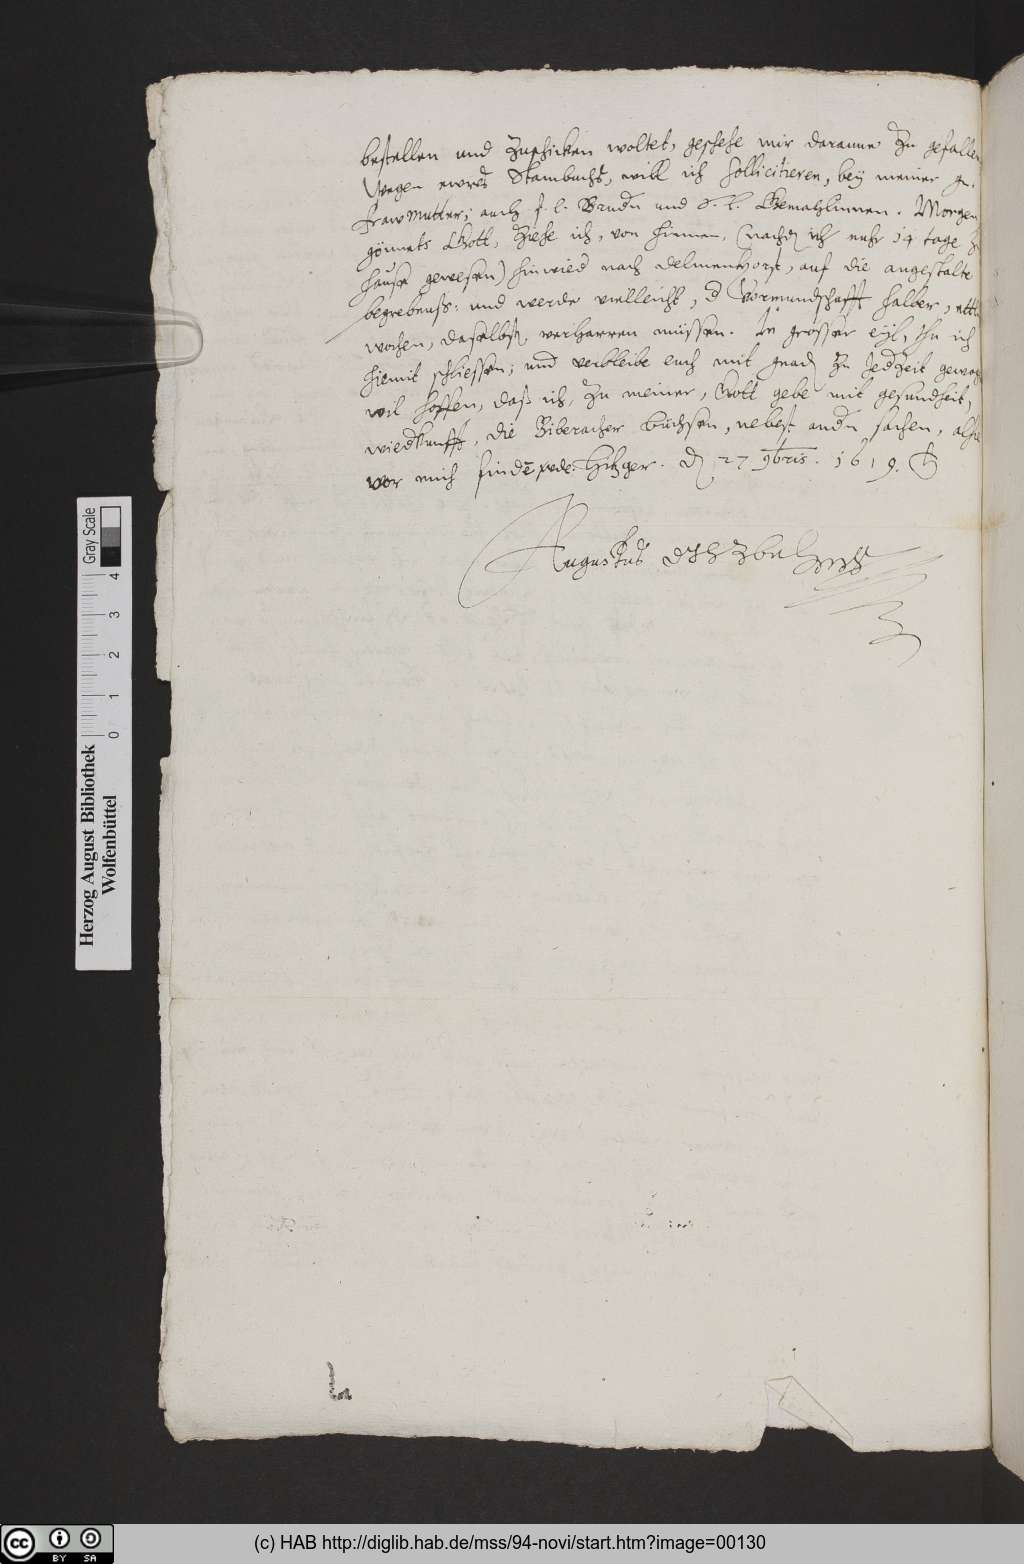 bestellen und zuschicken woltet, geschehe mir daranne zu gefallen
Wegen ewres Stambuchs, will ich sollicitieren, bey meiner gn.
Fraw Mutter; auch f. l. Brudn und S. l. Gemahlinnen. Morgen
gönnets Gott, ziehe ich, von hinnen, (nachd ich nuhr 14 tage zu
hause gewesen) hinwied nach Delmenhorst, auf die angestalte
begrebnß: und werde vielleicht, d Vormundschafft halber, ettl
wochen, daselbst verharren müssen. In grosser eyl, thu ich
hiemit schliessen; und verbleibe euch mit gnad zu jedzeit gewog
wil hoffen, daß ich, zu meiner, Gott gebe mit gesundheit,
wiedkunfft, die Biberacher büchsen, nebest andn sachen, alhie
vor mich finde Hitzger. D 27 9bris. 1619.
Augustus
Herzog August Bibliothek
Wolfenbüttel
Gray Scale
0 1 2 3 4
BY SA
(c) HAB http://diglib.hab.de/mss/94-novi/start.htm?image=00130